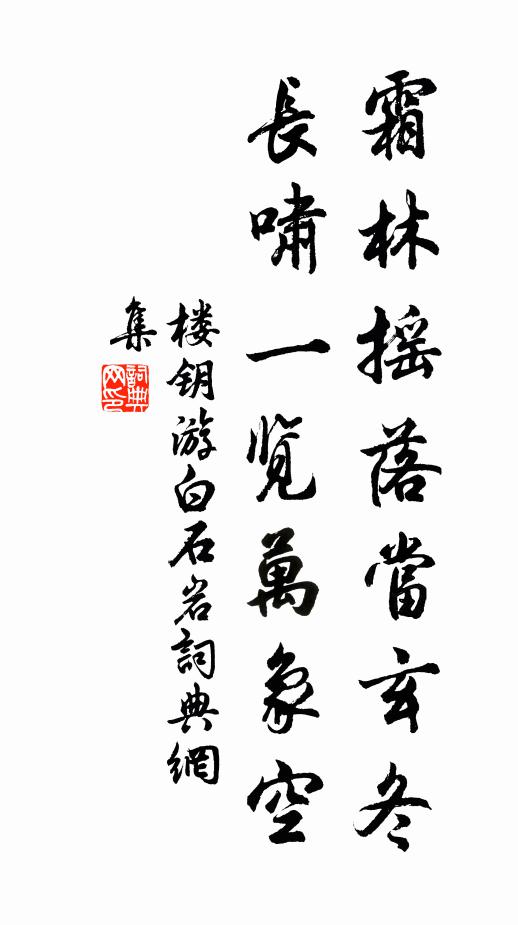 霜林摇落當玄冬
長嘯一览萬象空
楼钥游白石岩詞典網
集
詞典
网印